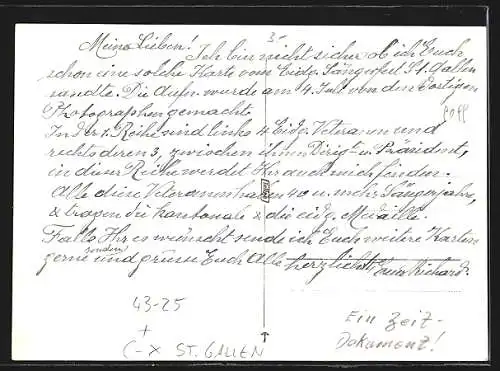 3.-
Meine Lieben! Ich bin nicht sicher ob ich Euch
schon eine solche Karte vom Eidg. Sängerfest St. Gallen
sandte. Die Aufn. wurde am 4. Juli von den dortigen
Photographen gemacht.
In der 1. Reihe sind links 4 Eidg. Veteranen und
rechts deren 3, zwischen ihnen Dirigt. u. Präsident,
in dieser Reihe werdet Ihr auch mich finden.
Alle diese Veteranen haben 40 u. mehr Sängerjahre,
& tragen die kantonale & die eidg. Medaille.
Falls Ihr es wünscht sende ich Euch weitere Karten
gerne und grüsse Euch Alle herzlichst Euer Richard.
senden
43-25
+
C-X ST. GALLEN
Ein Zeit-
Dokument!